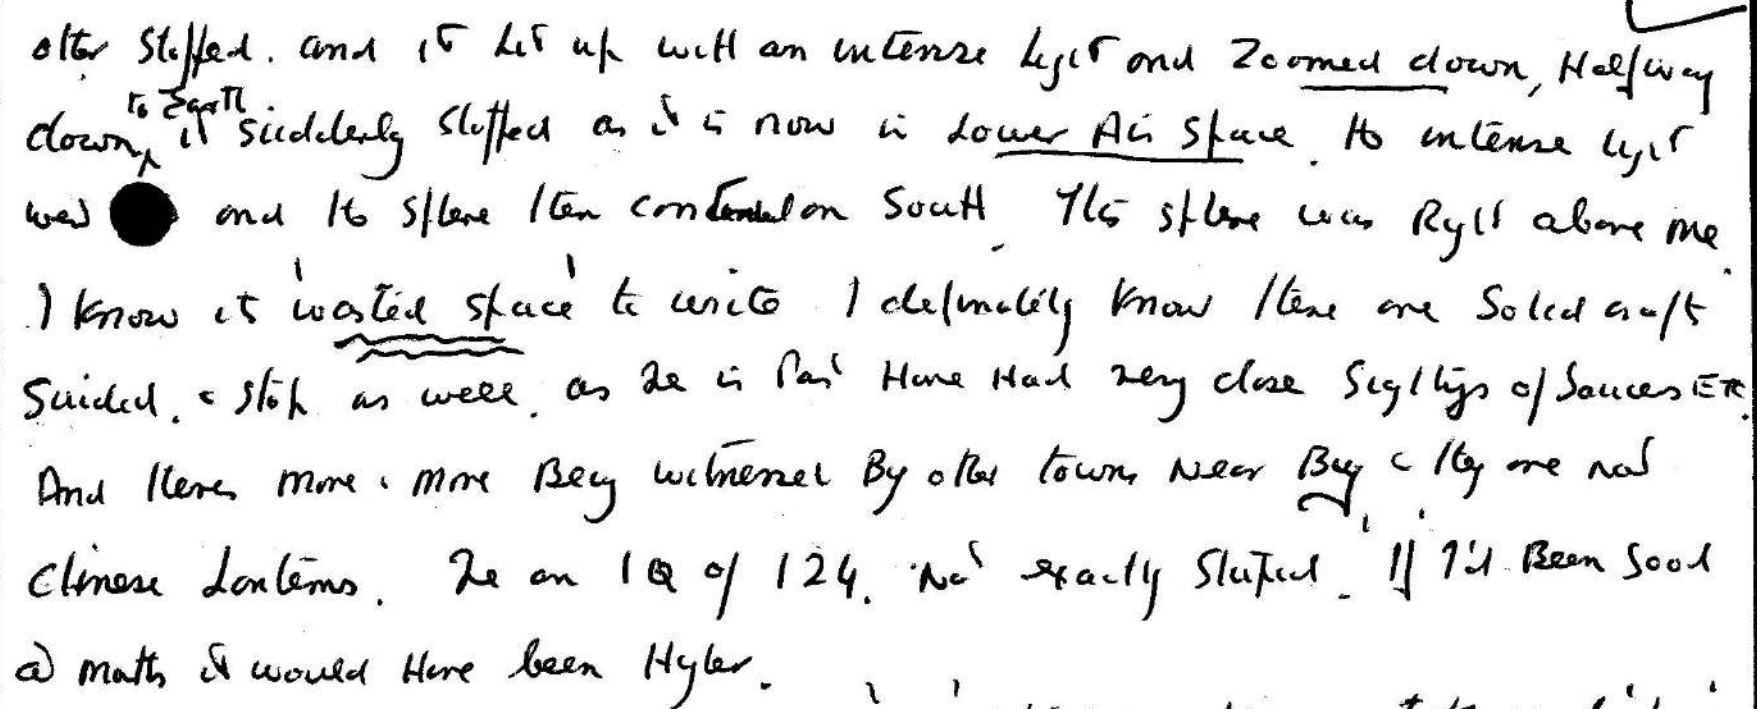 other stopped. and it Lit up with an intense Light and Zoomed down, Halfway
to Earth.
down, it suddenly stopped as it is now in Lower Air Space. the intense light
was and the sphere then continued on South. This sphere was Right above me.
I know it 'wasted space' to write I definately know there are Solid craft
Guided. & stop as well. as I've in Past Have Had very close Sightings of Saucers ETC.
And theres more & more Being witnessed By other towns Near Bury & they are not
Chinese Lanterns. I've an IQ of 124. Not exactly Stupid. If I'd Been Good
@ maths it would Have been Higher.